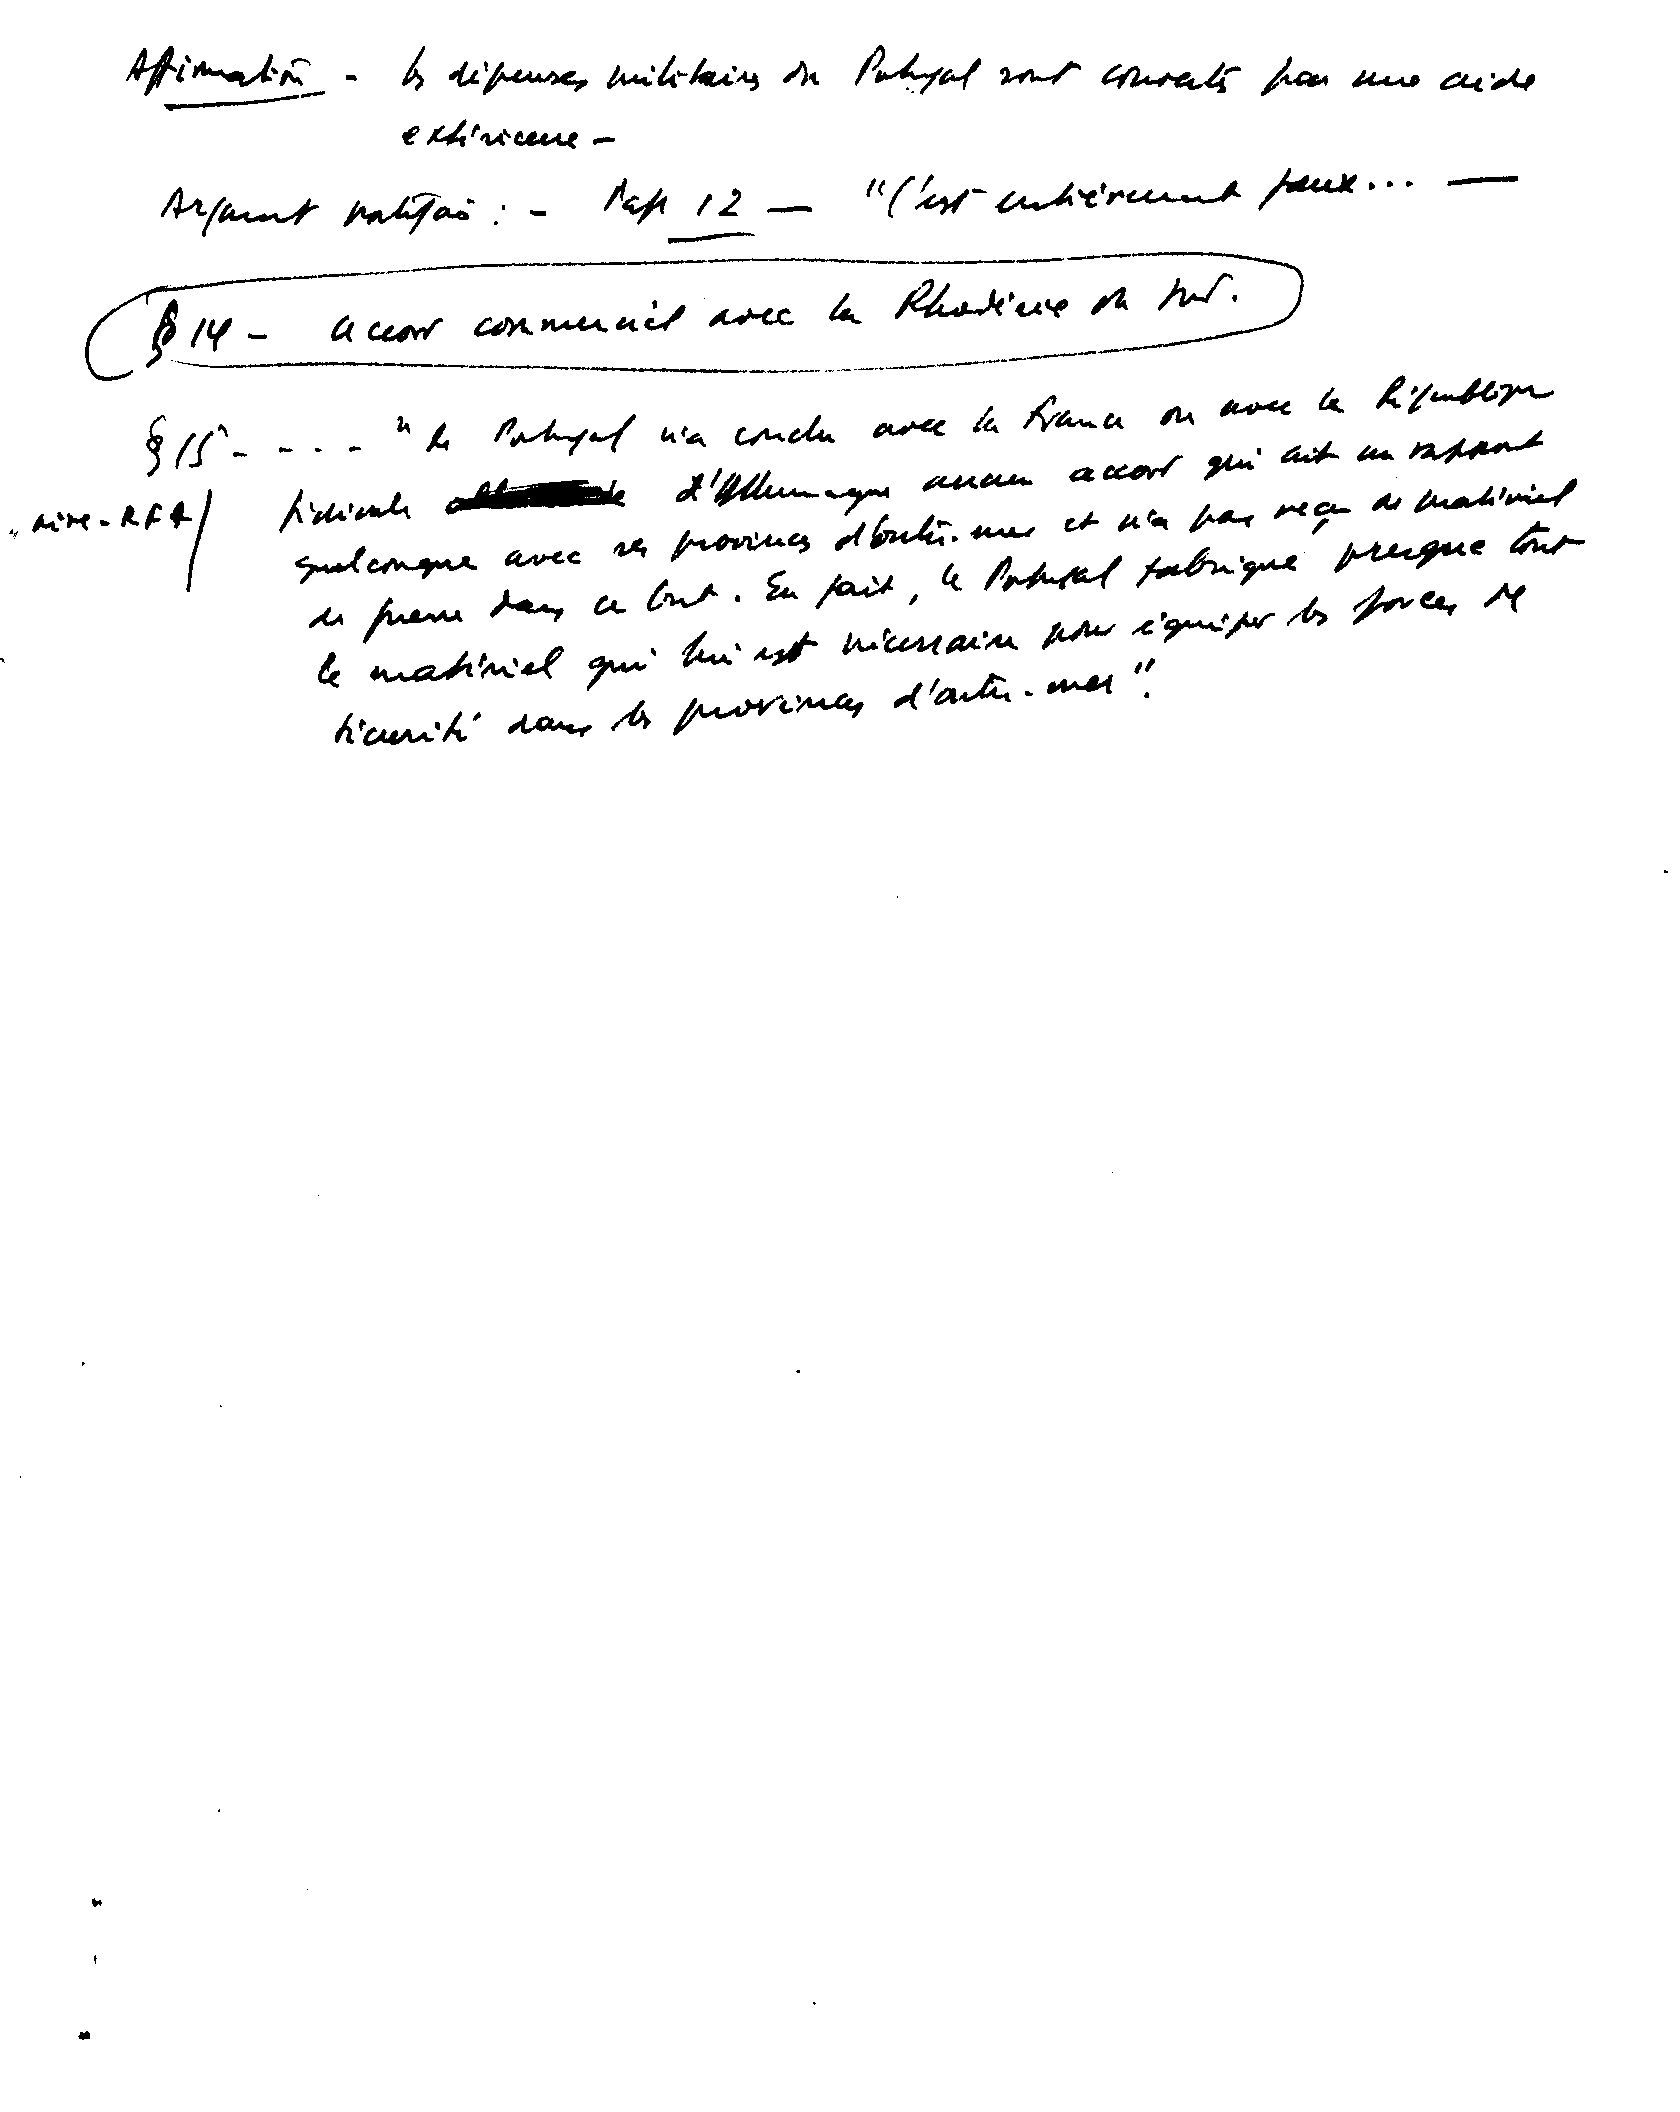 Affirmation - les dépenses militaires du Portugal sont couvertes par une aide
extérieure -
Argument portugais : - Page 12 — "C'est entièrement faux... —
§ 14 - accord commercial avec la Rhodésie du Sud.
§ 15 - - . . - " le Portugal n'a conclu avec la France ou avec la République
fédérale d'Allemagne aucun accord qui ait un rapport
aire - RFA / quelconque avec ses provinces d'outre-mer et n'a pas reçu de matériel
de guerre dans ce but. En fait, le Portugal fabrique presque tout
le matériel qui lui est nécessaire pour équiper les forces de
sécurité dans les provinces d'outre-mer".